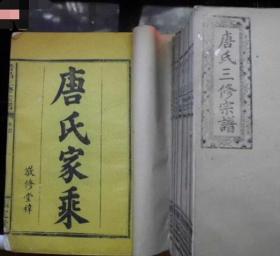 唐氏三修宗譜
唐氏家乘
敬修堂梓